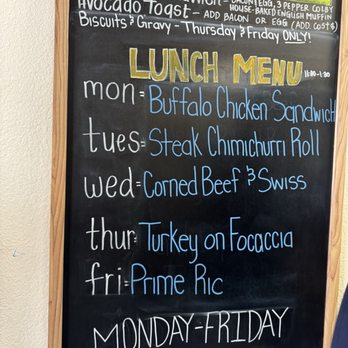 BACON, EGG, 3 PEPPER COLBY
HOUSE-BAKED ENGLISH MUFFIN
Avocado Toast - ADD BACON OR EGG (ADD COST $)
Biscuits & Gravy - Thursday & Friday ONLY!
LUNCH MENU 11:30-1:30
mon = Buffalo Chicken Sandwich
tues = Steak Chimichurri Roll
wed = Corned Beef & Swiss
thur: Turkey on Focaccia
fri = Prime Ric
MONDAY-FRIDAY